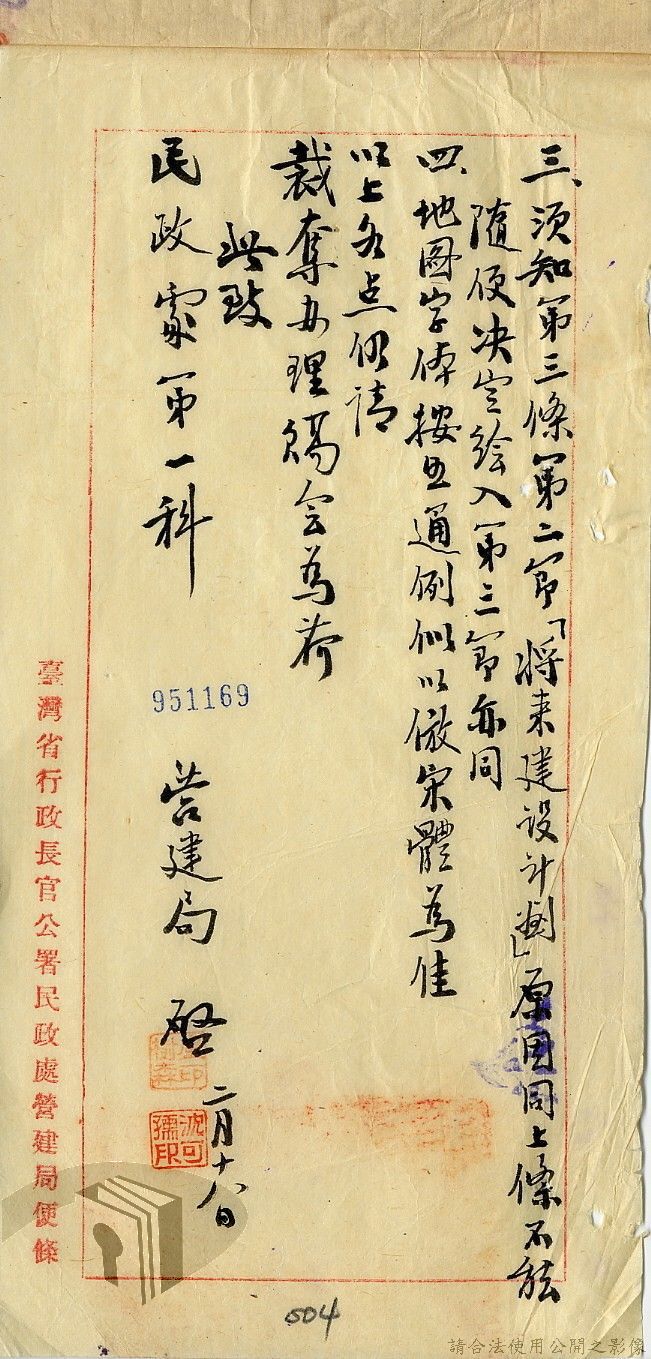 三、須知第三條第二節「將来建设计劃」原因同上條不能
隨便决定繪入第三節亦同
四、地图字体按照通例似以倣宋體為佳
以上各点仍請
裁奪办理賜会為荷
此致
民政處第一科
951169
营建局 啓 二月十八日
沈可孺印
臺灣省行政長官公署民政處營建局便條
504
請合法使用公開之影像